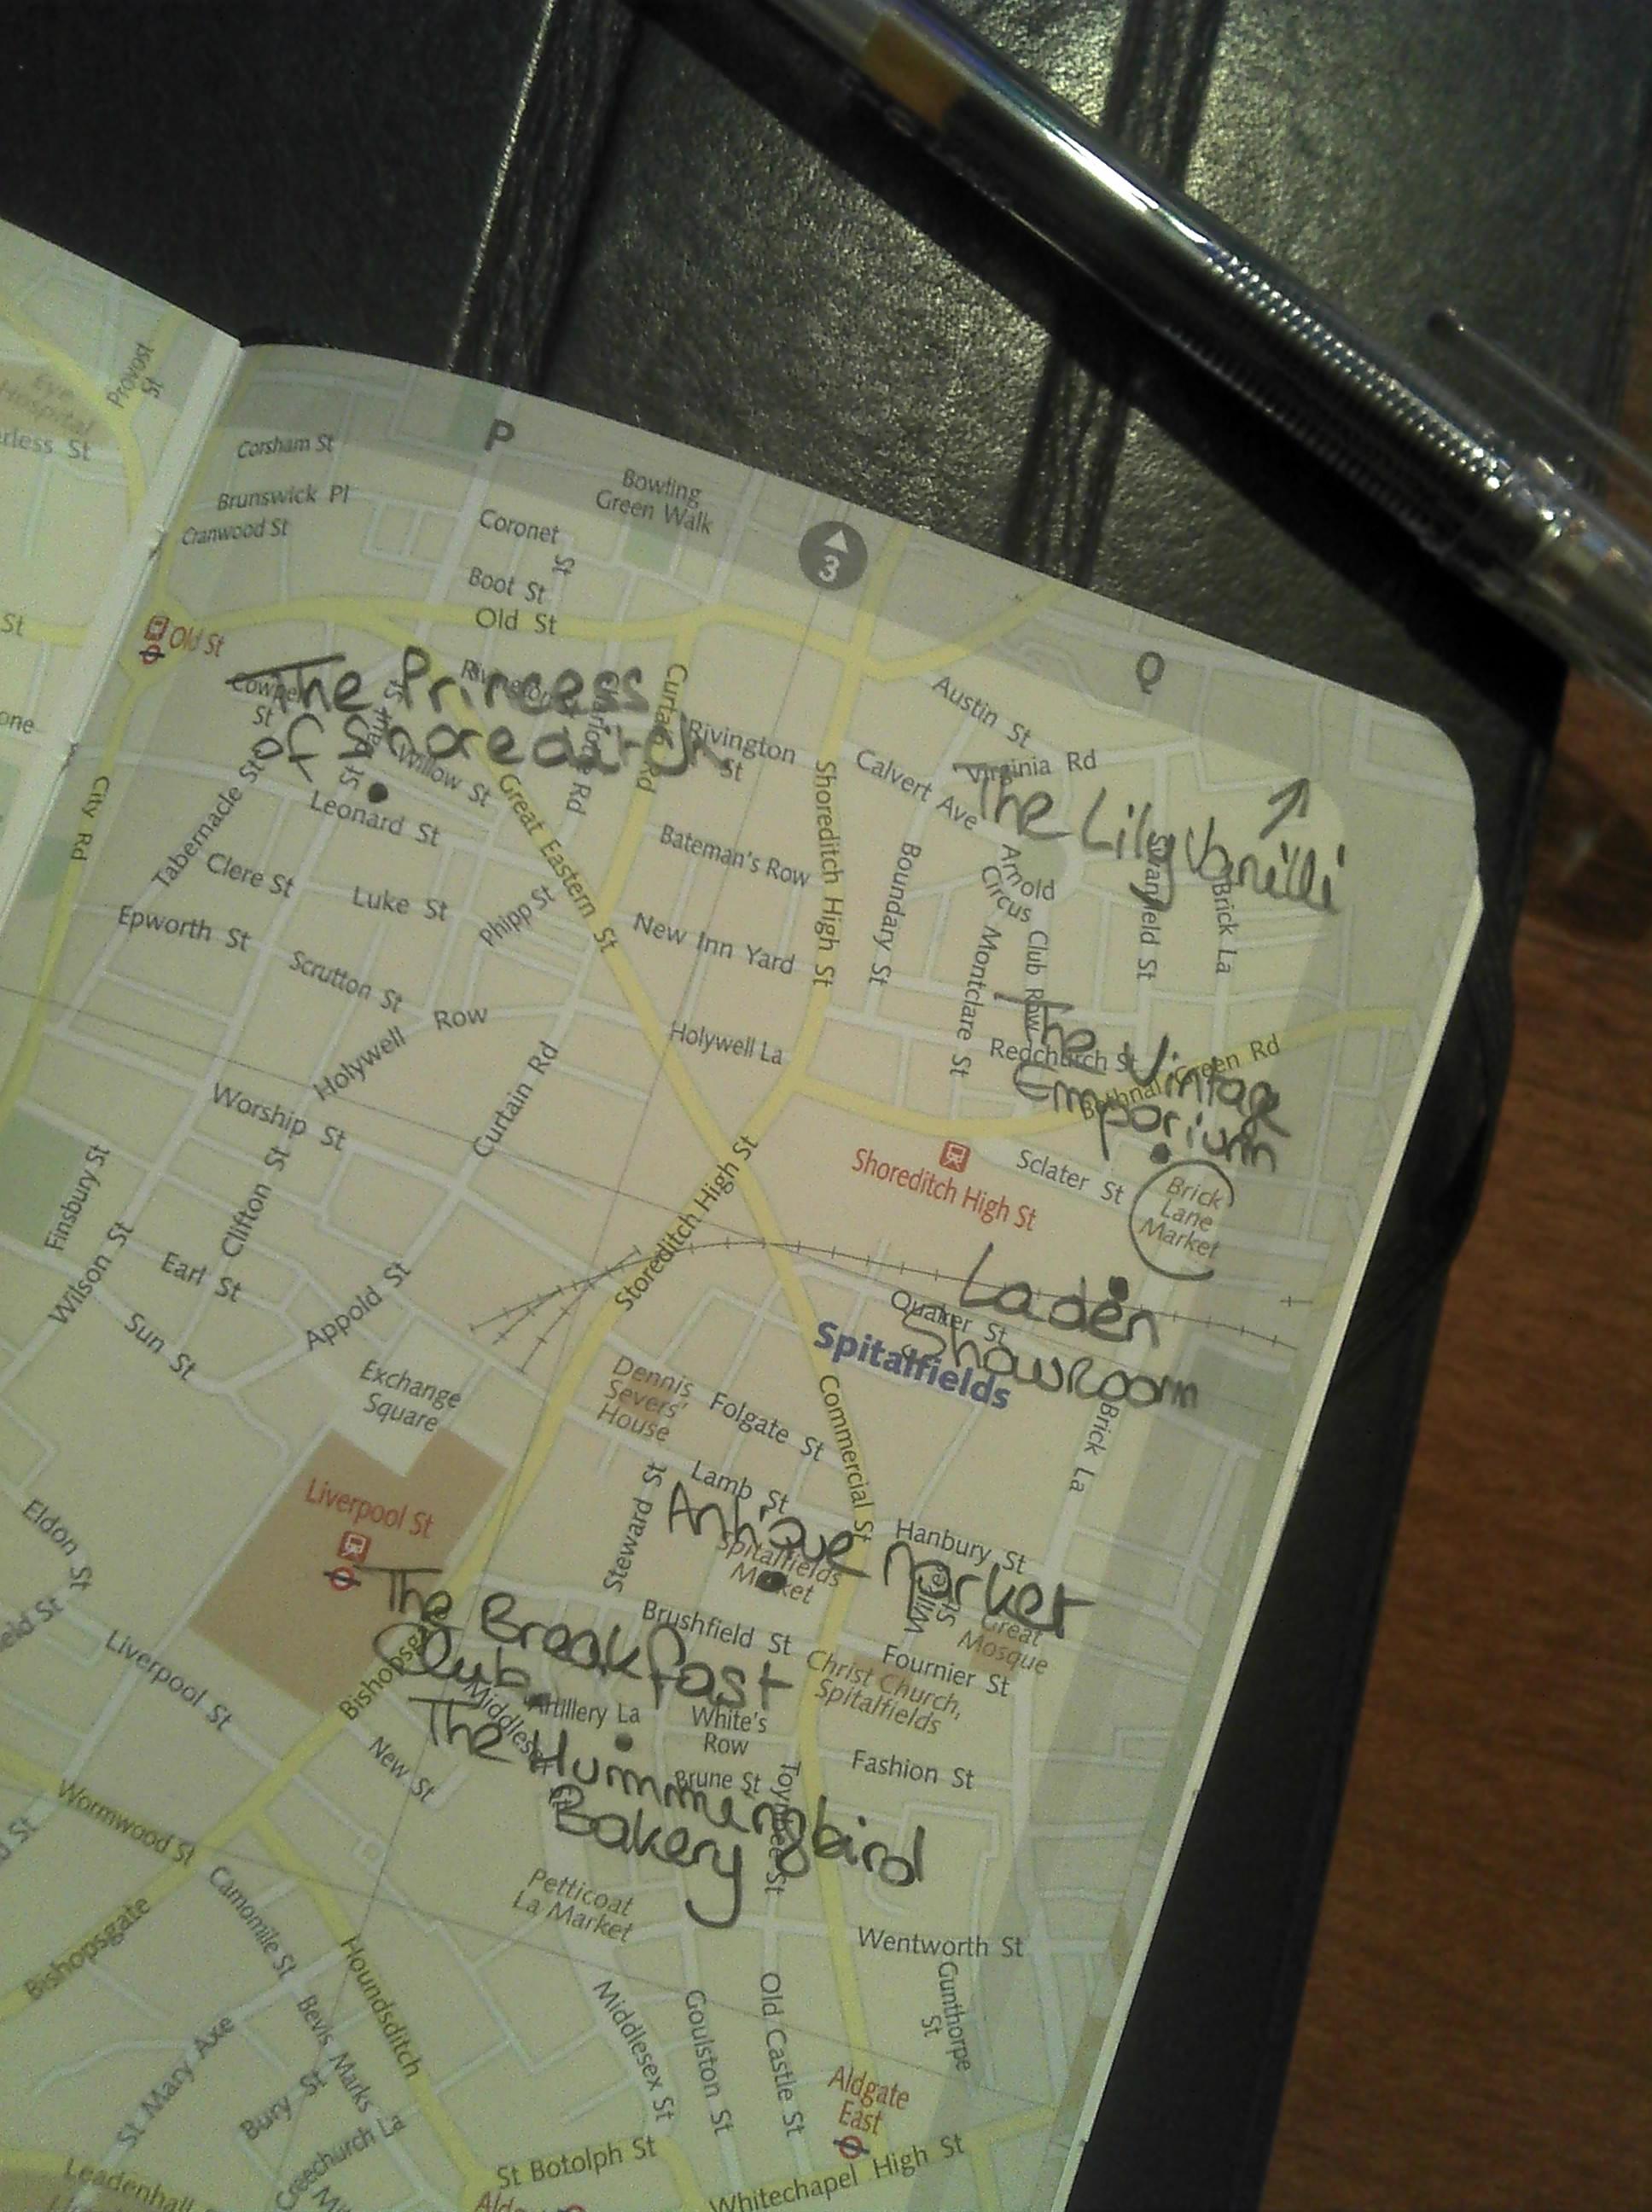 Provost
St
Eye
Hospital
rless St
Corsham St
P
Bowling
Green Walk
Brunswick Pl
Cranwood St
Coronet
St
3
Boot St
Old St
St
Old St
Q
The Princess
of Shoreditch
Rivington
St
Curtain
Rd
Austin St
Virginia Rd
Calvert Ave
The Lily Vanilli
one
City Rd
Tabernacle St
St
Willow St
Leonard St
Great Eastern St
Rd
Bateman's Row
Shoreditch High St
Boundary St
Arnold
Circus
Brick La
Clere St
Luke St
Phipp St
New Inn Yard
Epworth St
Scrutton St
Montclare St
Club Row
The Vintage
Emporium
Holywell Row
Holywell La
Redchurch St
Bethnal Green Rd
Worship St
Curtain Rd
Shoreditch High St
Sclater St
Brick
Lane
Market
Finsbury St
Clifton St
Storeditch High St
Wilson St
Earl St
Appold St
Sun St
Laden
Showroom
Quaker St
Spitalfields
Exchange
Square
Dennis
Severs'
House
Folgate St
Commercial St
Brick La
Lamb St
Liverpool St
Steward St
Antique Market
Spitalfields
Market
Hanbury St
Eldon St
eld St
The Breakfast
Club
Brushfield St
Great
Mosque
Fournier St
Christ Church,
Spitalfields
Liverpool St
Bishopsgate
Artillery La
White's
Row
The Hummingbird
Bakery
New St
Brune St
Fashion St
Wormwood St
Camomile St
Petticoat
La Market
Wentworth St
Bishopsgate
Houndsditch
Gunthorpe
St
Middlesex St
Goulston St
Old Castle St
Bevis Marks
St Mary Axe
Bury St
Creechurch La
Aldgate
East
St Botolph St
Whitechapel High St
Leadenhall